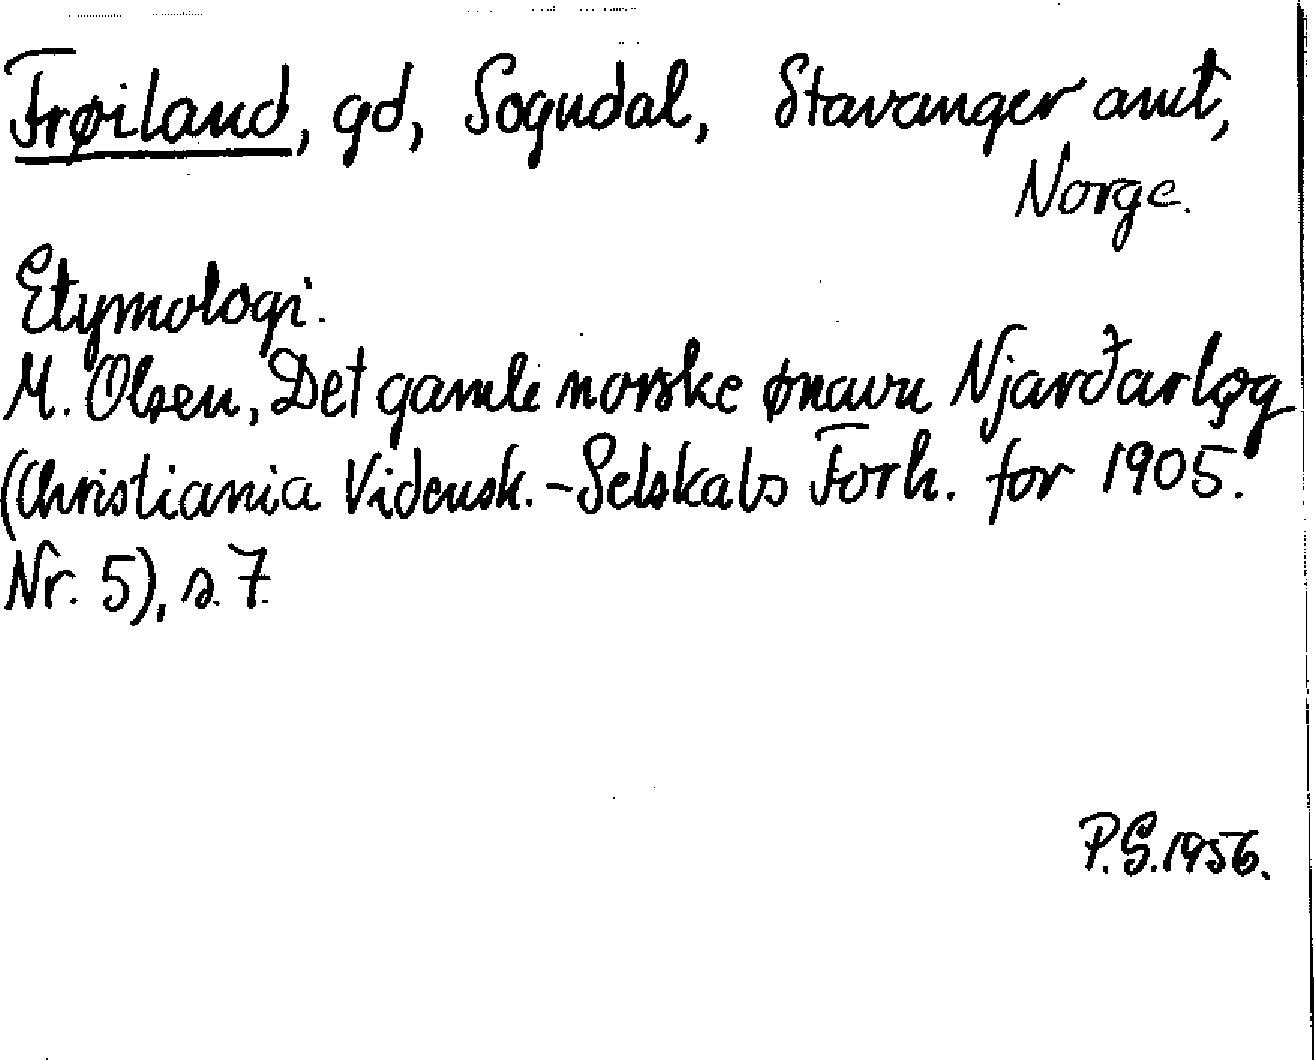 Frøiland, gd, Sogndal, Stavanger amt,
Norge.
Etymologi.
M. Olsen, Det gamle norske ønavn Njarðarlǫg
(Christiania Vidensk.-Selskabs Forh. for 1905.
Nr. 5), s. 7.
P.S. 1956.